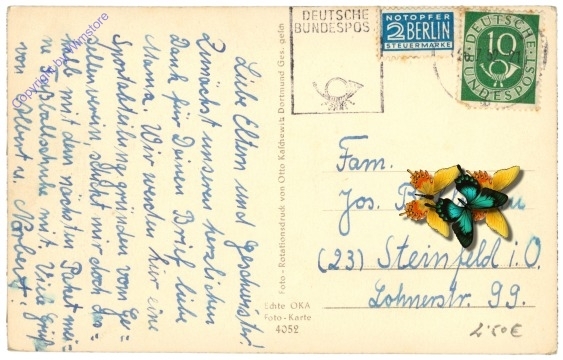 Copyright by wmstore
Liebe Eltern und Geschwister!
Zunächst unseren herzlichen
Dank für Deinen Brief liebe
Mama. Wir werden hier eine
Sportabteilung gründen vom Ge-
sellenverein, schickt mir doch des-
halb mit dem nächsten Paket mei-
ne Fußballschuhe mit. Viele Grüße
von Albert u. Norbert!
Foto-Rotationsdruck von Otto Kaschewitz Dortmund Ges. gesch
Echte OKA
Foto-Karte
4052
DEUTSCHE
BUNDESPOS
NOTOPFER
2 BERLIN
STEUERMARKE
DEUTSCHE
10
BUNDESPOST
Fam.
Jos.
(23) Steinfeld i. O.
Lohnerstr. 99.
2.50€